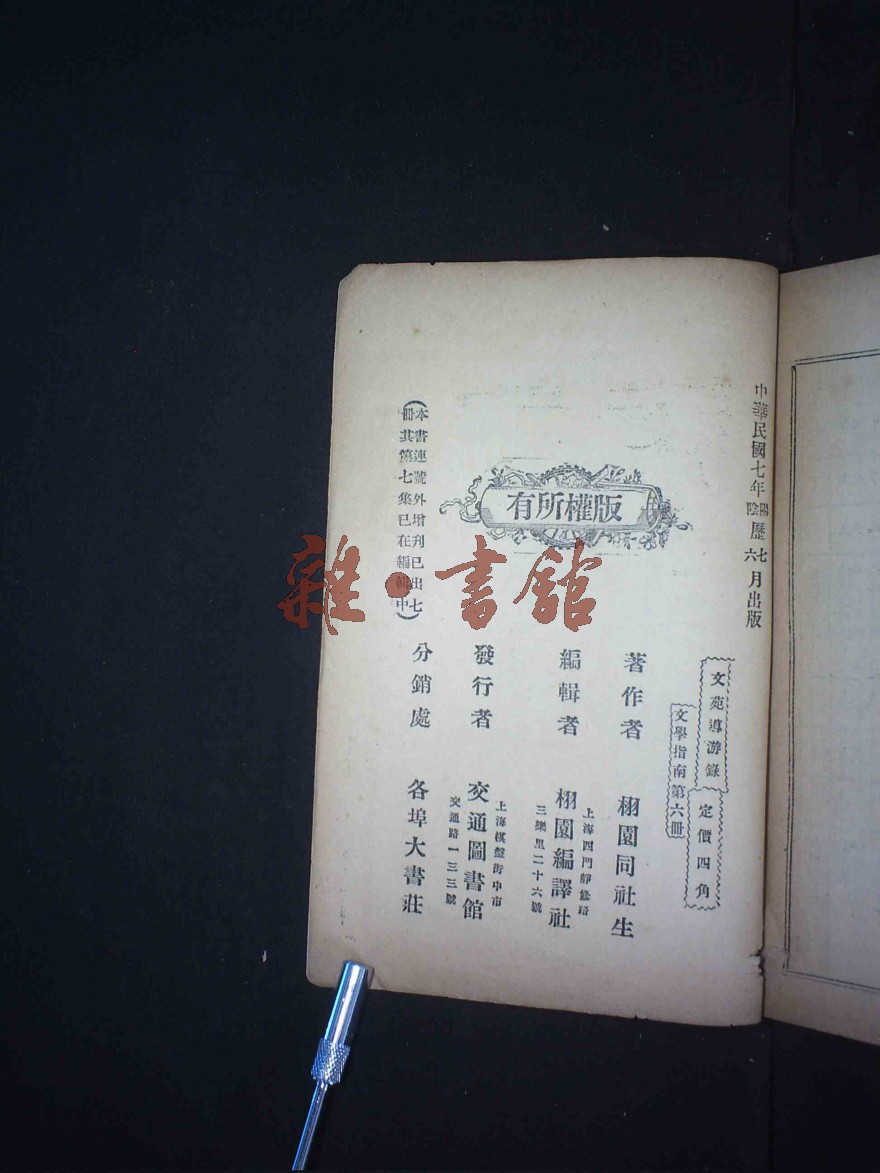 中華民國七年陽陰歷七六月出版
文苑導游錄
定價四角
文學指南第六冊
著作者 栩園同社生
編輯者 栩園編譯社
上海西門靜修路
三樂里二十六號
發行者 交通圖書館
上海棋盤街中市
交通路一三三號
分銷處 各埠大書莊
版權所有
(本書連號外增刊已出七
冊其第七集已在編輯中)
雜·書館